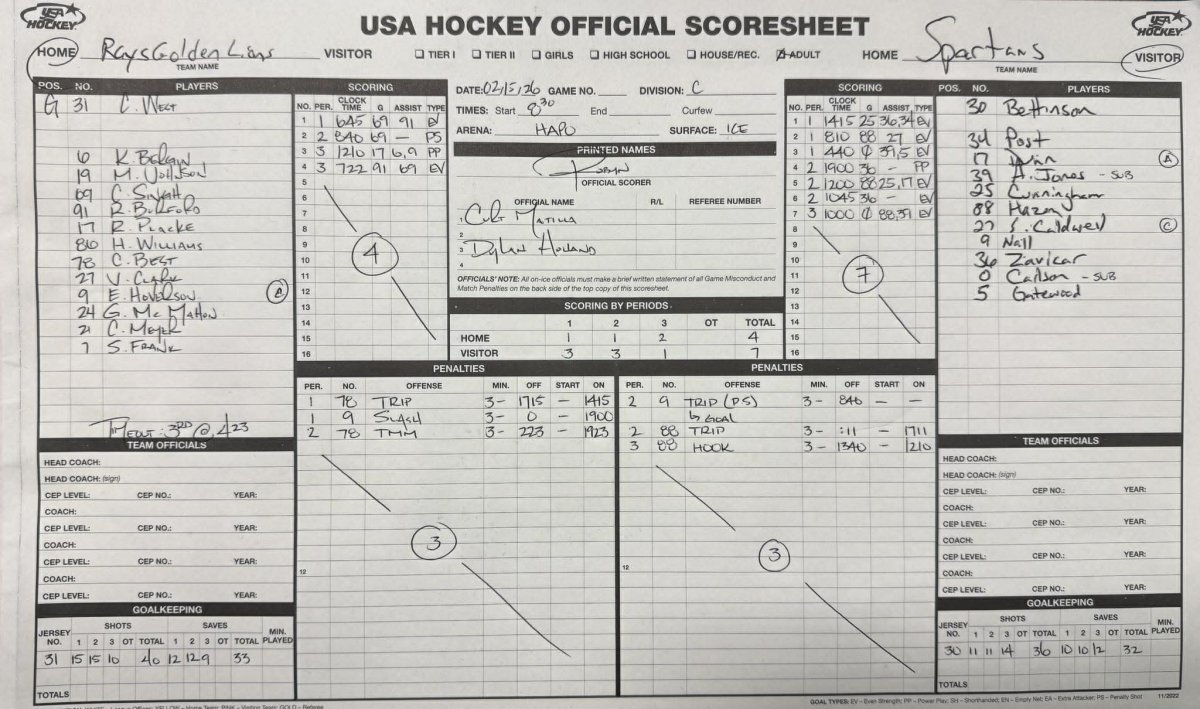 USA HOCKEY
USA HOCKEY OFFICIAL SCORESHEET
USA HOCKEY
HOME RaysGoldenLions VISITOR
TEAM NAME
☐ TIER I ☐ TIER II ☐ GIRLS ☐ HIGH SCHOOL ☐ HOUSE/REC. ☒ ADULT
HOME Spartans VISITOR
TEAM NAME
POS. NO. PLAYERS
G 31 C. West
6 K. Belgin
19 M. Johnson
69 C. Singh
91 R. Burford
17 R. Placke
86 H. Williams
78 C. Best
27 V. Clark
9 E. Hoverson
24 G. McMahon
21 C. Meyer
7 S. Frank
Timeout: 3RD @ 423
SCORING
NO. PER. CLOCK TIME G ASSIST TYPE
1 1 645 69 91 EV
2 2 840 69 — PS
3 3 1210 17 6,9 PP
4 3 722 91 69 EV
5
6
7
8
9
10
11
12
13
14
15
16
4
DATE: 02/15/26 GAME NO. DIVISION: C
TIMES: Start 8:30 End Curfew
ARENA: HAPO SURFACE: ICE
PRINTED NAMES
OFFICIAL SCORER
OFFICIAL NAME R/L REFEREE NUMBER
1 Curt Matilla
2
3 Dylan Holland
4
OFFICIALS' NOTE: All on-ice officials must make a brief written statement of all Game Misconduct and
Match Penalties on the back side of the top copy of this scoresheet.
SCORING BY PERIODS
1 2 3 OT TOTAL
HOME 1 1 2 4
VISITOR 3 3 1 7
SCORING
NO. PER. CLOCK TIME G ASSIST TYPE
1 1 1415 25 36,34 EV
2 1 810 88 27 EV
3 1 440 0 39,5 EV
4 2 1900 36 - PP
5 2 1200 88 25,17 EV
6 2 1045 36 - EV
7 3 1000 0 88,39 EV
8
9
10
11
12
13
14
15
16
7
POS. NO. PLAYERS
30 Bettinson
34 Post
17 A
39 A. Jones - SUB
25 Cunningham
88 Hazen
27 S. Caldwell C
9 Nall
36 Zavicar
0 Carlson - SUB
5 Gatewood
PENALTIES
PER. NO. OFFENSE MIN. OFF START ON
1 78 TRIP 3- 1715 - 1415
1 9 SLASH 3- 0 - 1900
2 78 TMM 3- 223 - 1923
12
3
PENALTIES
PER. NO. OFFENSE MIN. OFF START ON
2 9 TRIP (PS) 3- 840 - -
↳ GOAL
2 88 TRIP 3- :11 - 1711
3 88 HOOK 3- 1340 - 1210
12
3
TEAM OFFICIALS
HEAD COACH:
HEAD COACH: (sign)
CEP LEVEL: CEP NO.: YEAR:
COACH:
CEP LEVEL: CEP NO.: YEAR:
COACH:
CEP LEVEL: CEP NO.: YEAR:
COACH:
CEP LEVEL: CEP NO.: YEAR:
GOALKEEPING
SHOTS SAVES
JERSEY NO. 1 2 3 OT TOTAL 1 2 3 OT TOTAL MIN. PLAYED
31 15 15 10 40 12 12 9 33
TOTALS
TEAM OFFICIALS
HEAD COACH:
HEAD COACH: (sign)
CEP LEVEL: CEP NO.: YEAR:
COACH:
CEP LEVEL: CEP NO.: YEAR:
COACH:
CEP LEVEL: CEP NO.: YEAR:
COACH:
CEP LEVEL: CEP NO.: YEAR:
GOALKEEPING
SHOTS SAVES
JERSEY NO. 1 2 3 OT TOTAL 1 2 3 OT TOTAL MIN. PLAYED
30 11 11 14 36 10 10 12 32
TOTALS
GOAL TYPES: EV – Even Strength; PP – Power Play; SH – Shorthanded; EN – Empty Net; EA – Extra Attacker; PS – Penalty Shot 11/2022